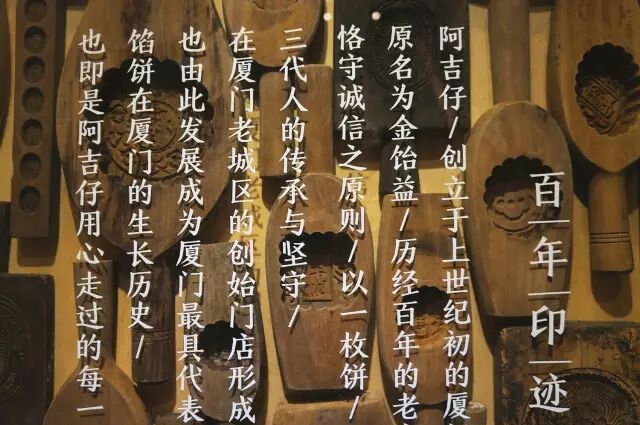 百年印迹
阿吉仔/创立于上世纪初的厦
原名为金饴益/历经百年的老
恪守诚信之原则/以一枚饼/
三代人的传承与坚守/
在厦门老城区的创始门店形成
也由此发展成为厦门最具代表
馅饼在厦门的生长历史/
也即是阿吉仔用心走过的每一